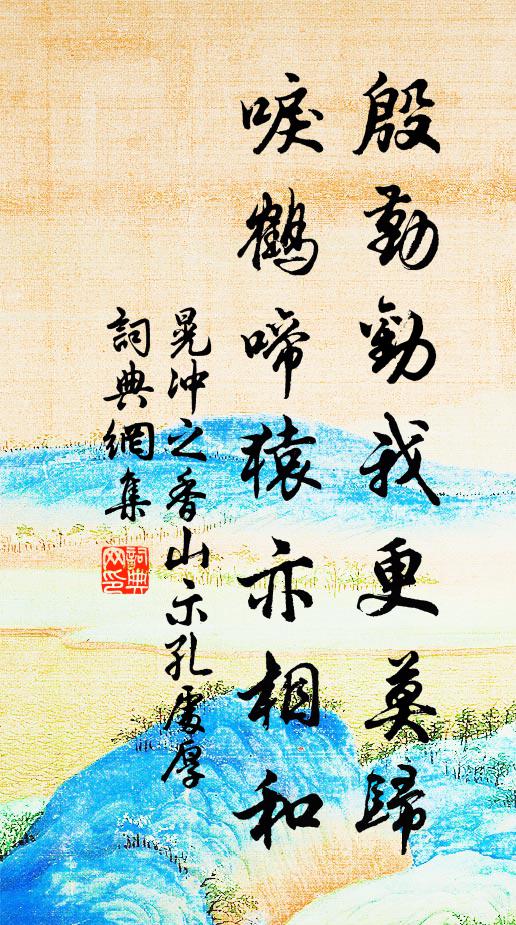 殷勤勸我更莫歸
唳鶴啼猿亦相和
晁沖之香山示孔處厚
詞典網集
詞典網印